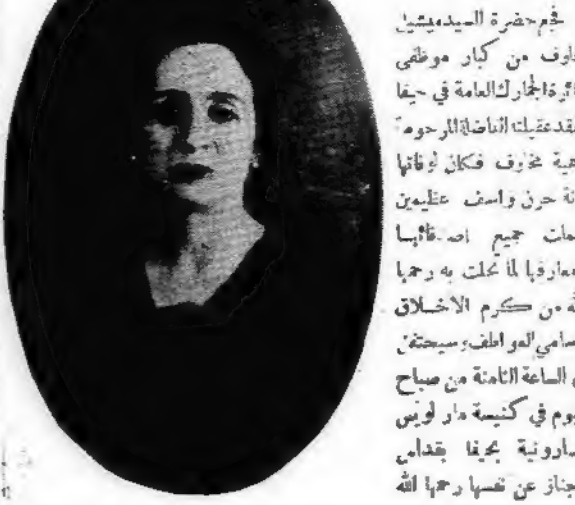 فجع حضرة السيد ميشيل
من كبار موظفي
الجمارك العامة في حيفا
بفقد عقيلته الفاضلة المرحومة
مخلوف فكان لوفاتها
حزن واسف عظيمين
جميع اصدقائها
ومعارفها لما تحلت به رحمها
من كرم الاخلاق
وسامي العواطف وسيحتفل
الساعة الثامنة من صباح
في كنيسة مار لويس
المارونية بحيفا بقداس
وجناز عن نفسها رحمها الله